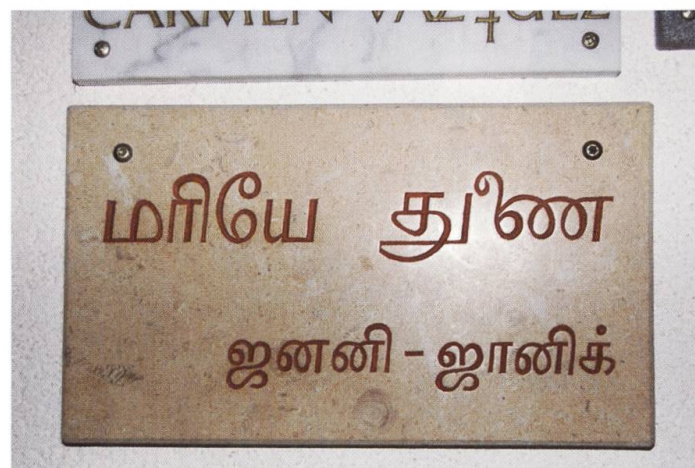 CARMEN VAZQUEZ
மரியே துணை
ஜனனி - ஜானிக்